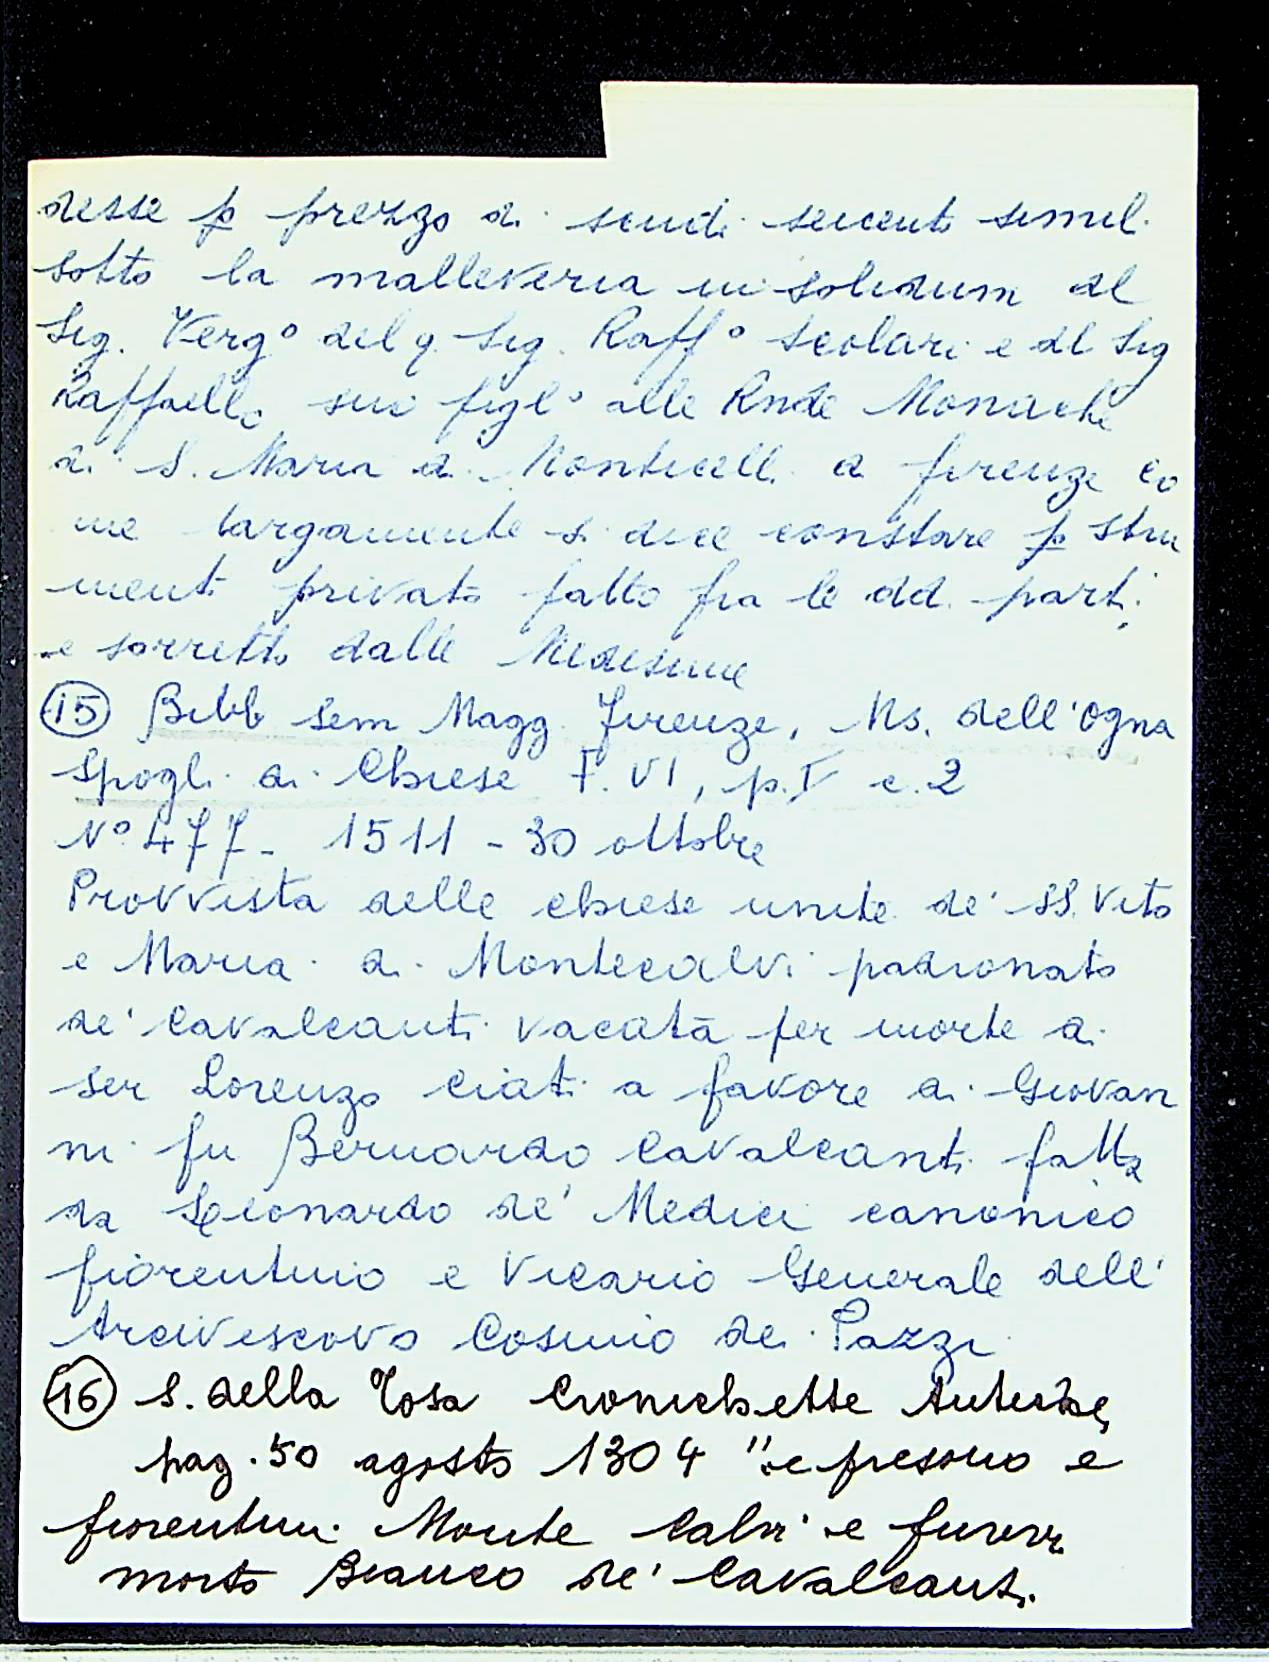 desse p prezzo di scudi seicento simil.
sotto la malleveria in solidum del
Sig. Verg° del q. Sig. Raff° Scolari e del Sig
Raffaello suo figl° alle Rnde Monache
di S. Maria a Monticelli di firenze co
me largamente si dice constare p stru
mento privato fatto fra le dd. parti
e sorretto dalle Medesime
(15) Bibb Sem Magg. Firenze, Ms. dell'Ogna
Spogli di Chiese F. VI, p. I c. 2
N° 477 - 1511 - 30 ottobre
Provvista delle chiese unite de' SS. Vito
e Maria di Montecalvi padronato
de' Cavalcanti vacata per morte di
ser Lorenzo Ciati a favore di Giovan
ni fu Bernardo Cavalcanti fatta
da Leonardo de' Medici canonico
fiorentino e Vicario Generale dell'
Arcivescovo Cosimo de' Pazzi
(16) S. della Tosa Cronichette Antiche,
pag. 50 agosto 1304 "e presono e
fiorentini Monte Calvi e funvi
morto Bianco de' Cavalcanti.